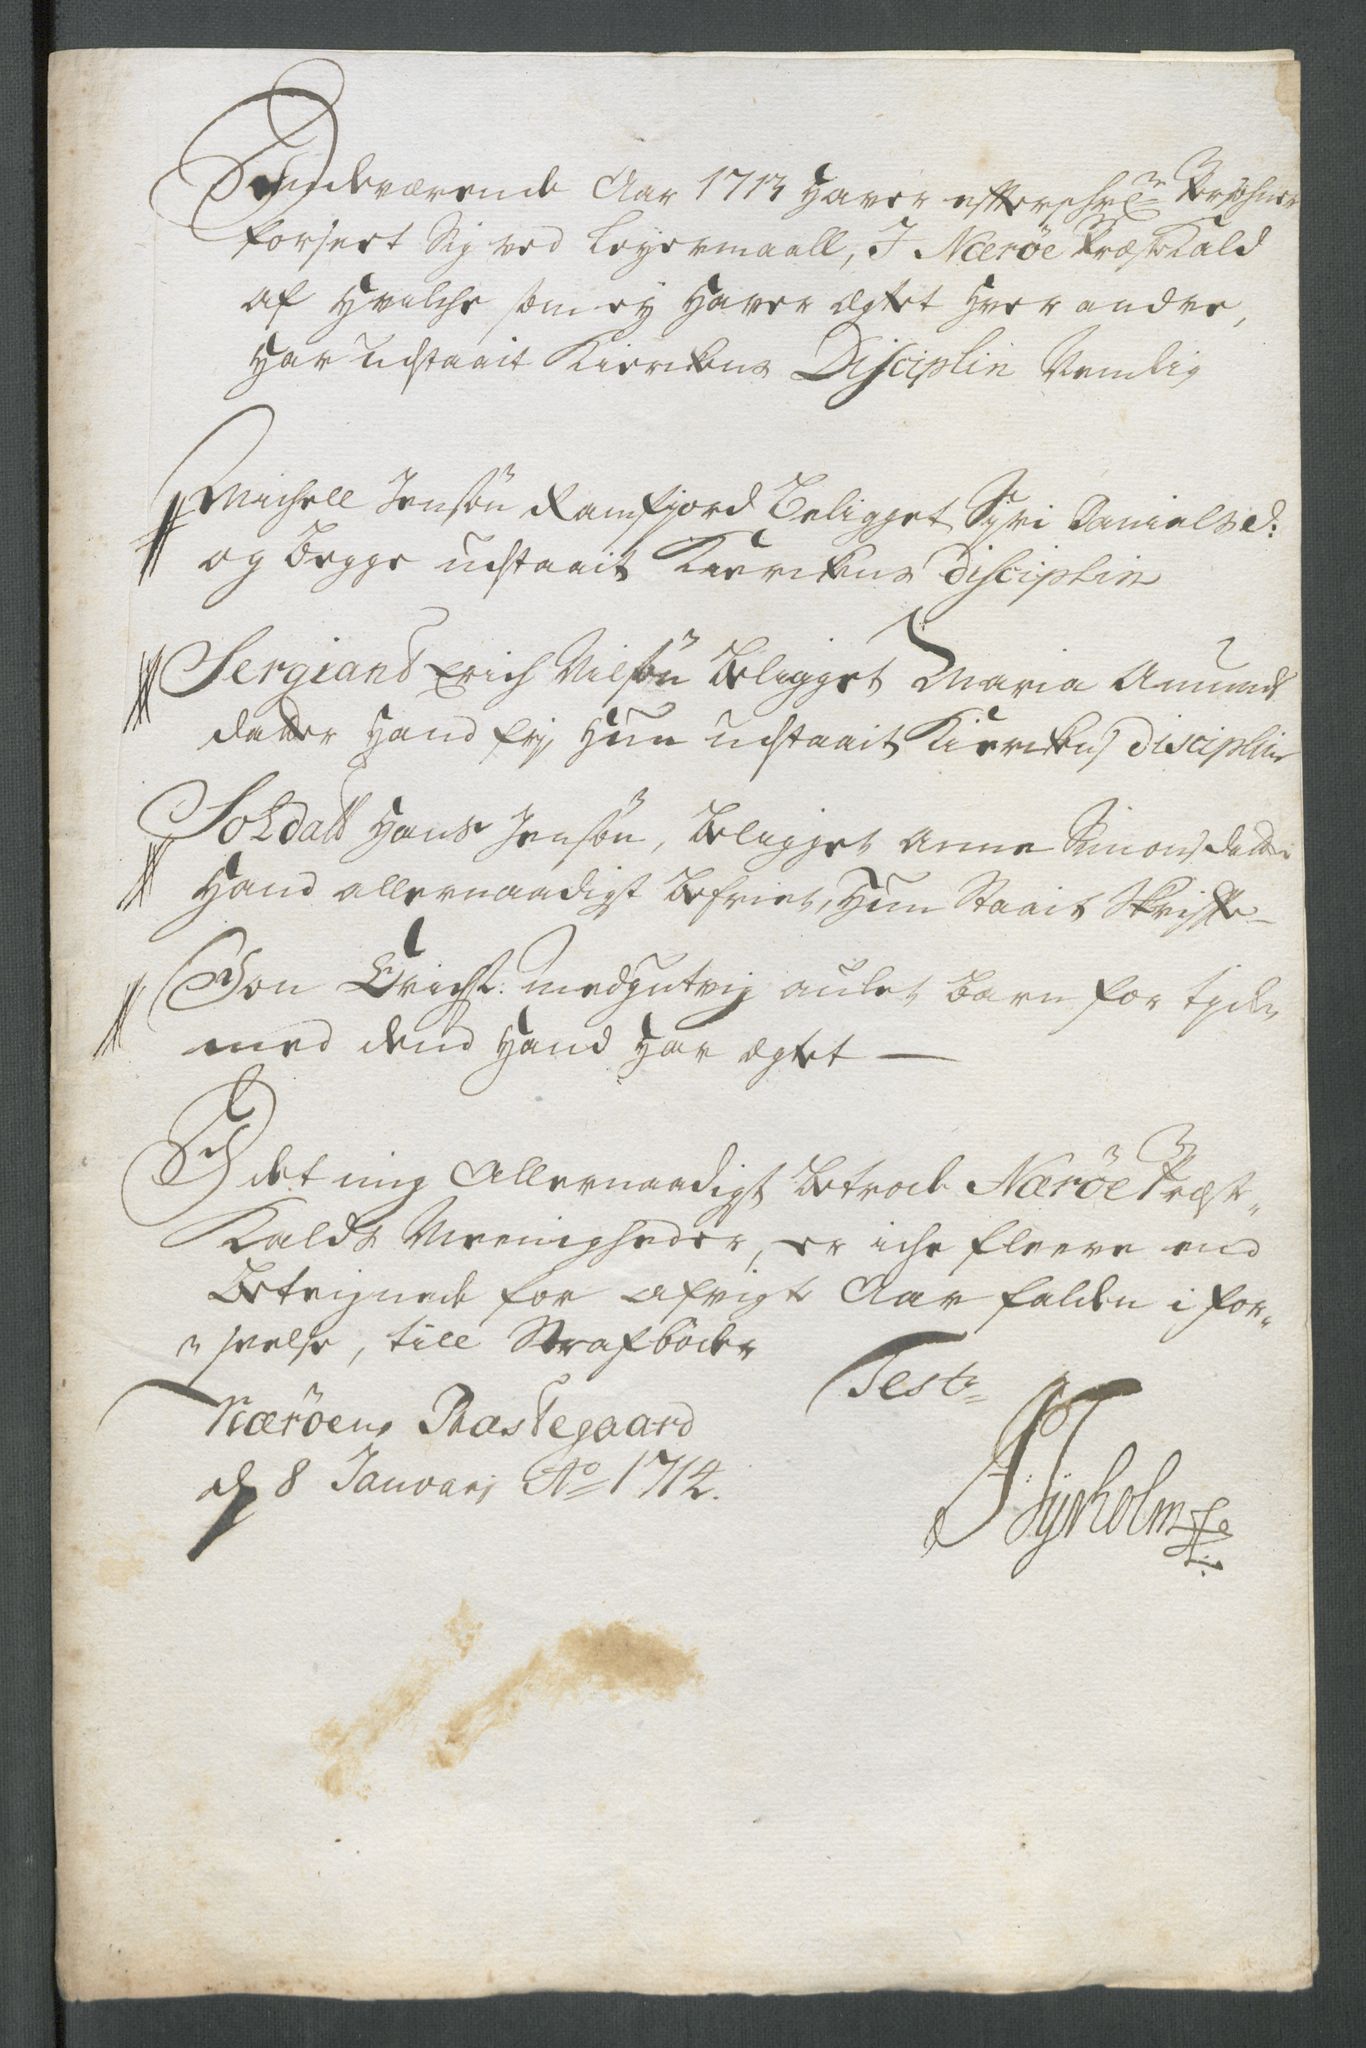 Inderværende Aar 1713 Haver efterschr: Persohner
forseet Sig ved Leyermaall, I Nærøe Præste Kald
af Hvilche som ey Haver Ægtet Hver andre,
Har udstaait Kierckens Disciplin Nemlig
Michell Jensøn Ramfjord Beligget Siri Daniels d:
og begge udstaait Kierckens Disciplin
Sergiant Erich Nilsøn Beligget Maria Amunds
datter Hand frj Hun udstaait Kierckens Disciplin
Soldatt Hans Jensøn, Beligget Anne Simonsdatter
Hand allernaadigst Befriet, Hun Staait Skriffte
Jon Erichs: auflet Barn for tyden
med dend Hand Har Ægtet
I det mig Allernaadigst Betroede Nærøe Præste
Kalds Meenigheder, er iche fleere end
Bteignede for afvigt Aar falden i for-
seelse, till Strafbøder
Test:
Nærøens Præstegaard
d 8 Januarj Ao 1714.
Tyrholm